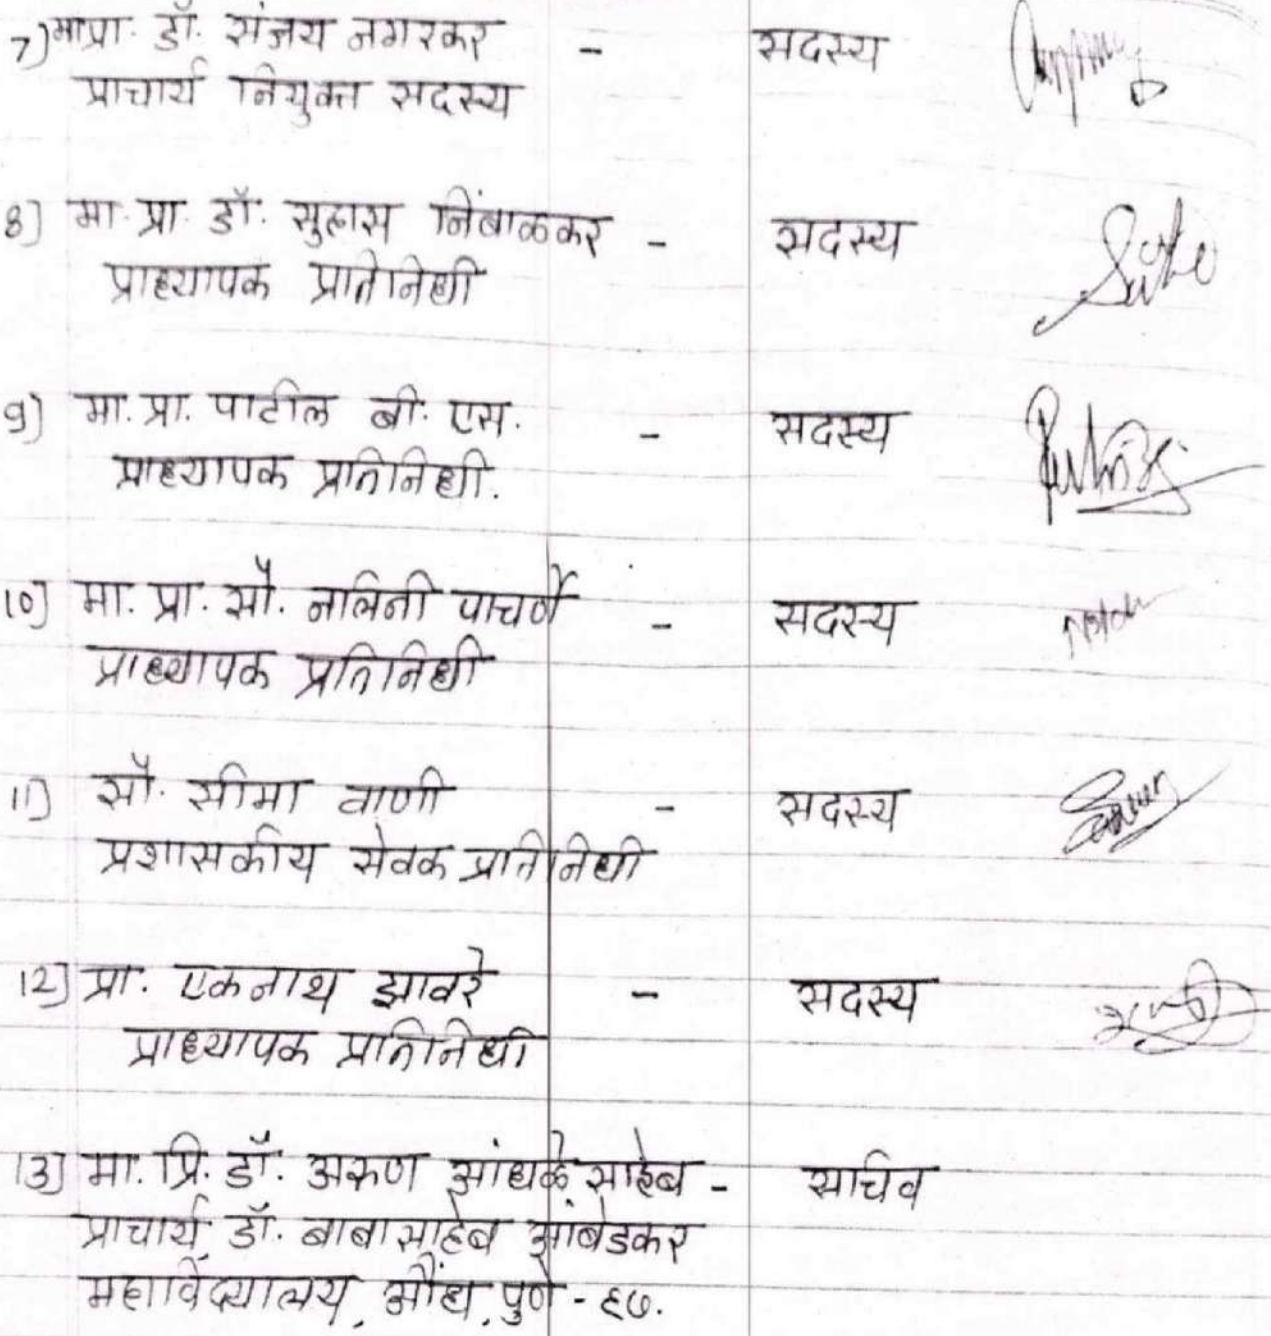 7) मा.प्रा. डॉ. संजय नगरकर - सदस्य
प्राचार्य नियुक्त सदस्य
8) मा. प्रा. डॉ. सुहास निंबाळकर - सदस्य
प्राध्यापक प्रतिनिधी
9) मा. प्रा. पाटील बी. एस. - सदस्य
प्राध्यापक प्रतिनिधी.
10) मा. प्रा. सौ. नलिनी पाचर्णे - सदस्य
प्राध्यापक प्रतिनिधी
11) सौ. सीमा वाणी - सदस्य
प्रशासकीय सेवक प्रतिनिधी
12) प्रा. एकनाथ झावरे - सदस्य
प्राध्यापक प्रतिनिधी
13) मा. प्रि. डॉ. अरुण आंधळे साहेब - सचिव
प्राचार्य, डॉ. बाबासाहेब आंबेडकर
महाविद्यालय, औंध, पुणे - ६७.